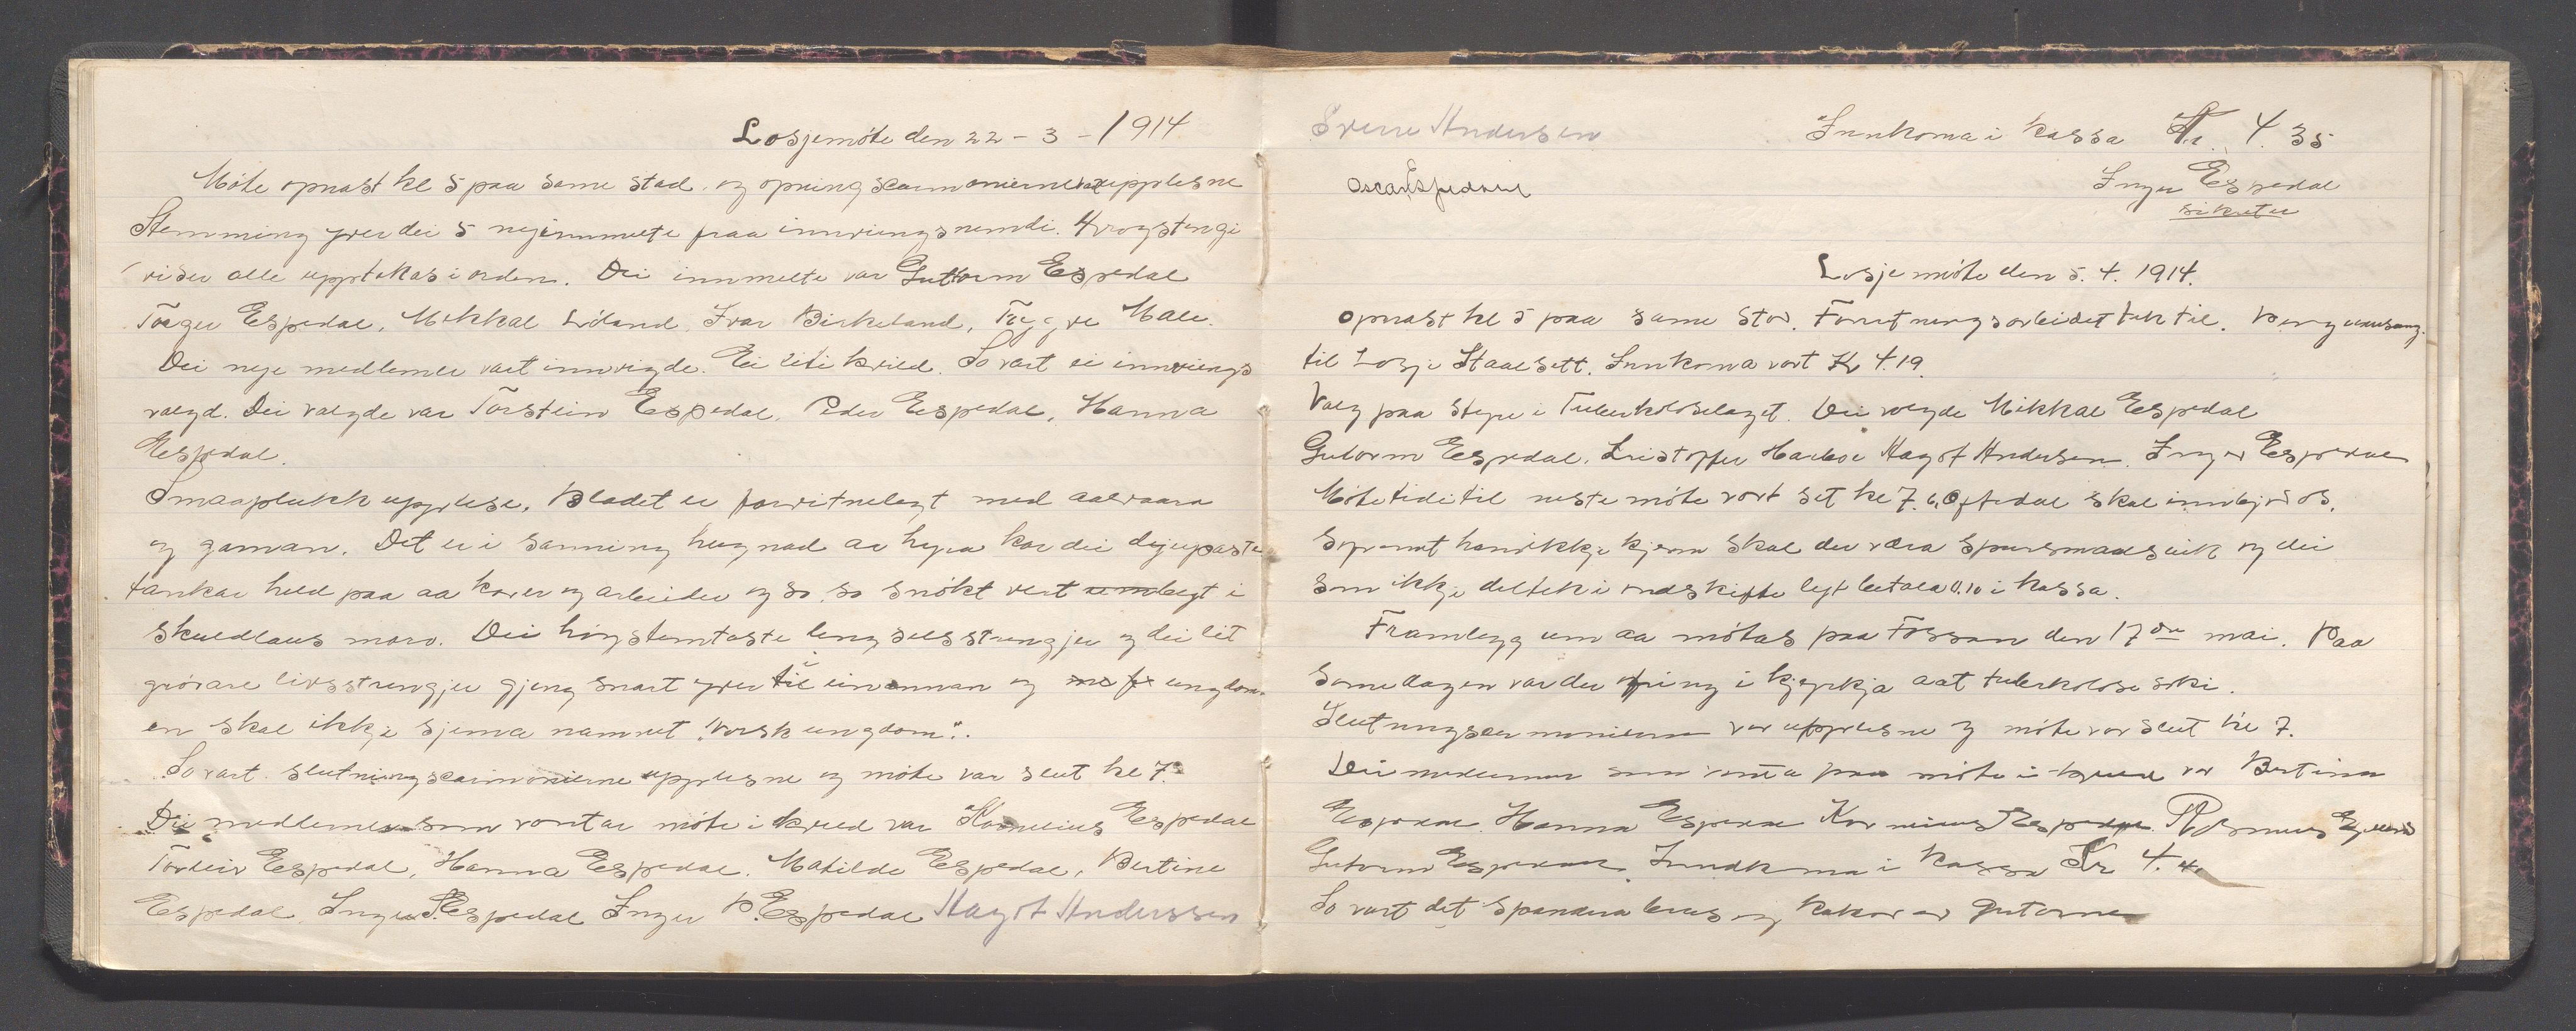 Losjemöte den 22 - 3 - 1914
Möte opnast kl 5 paa same stad. og opning scarmonierne var upplesne
Stemming yver dei 5 nyinnmelte fraa innviengsnemdi.
viser alle upptekas i orden. Dei innmelte var Guttorm Espedal
Torger Espedal, Mikkal Löland Ivar Birkeland, Trygve Male.
Dei nye medlemer vart innvigde. Ei liti kvild. So vart ei innviengs
valgd. Dei valgde var Torstein Espedal, Peder Espedal, Hanna
Espedal.
Smaaplukk upplese. Bladet er forvitnelegt med aalvaara
og gaman. Det er i sanning hugnad aa hyra kor dei djupaste
tankar held paa aa kaver og arbeider og so so snökt vert lagt i
skuldlaus moro. Dei högstemtaste lengselsstrengjer og dei lit
grövare livsstrengjer gjeng snart yver til einannan og ungdom-
en skal ikkje sjemma namnet "Norsk ungdom".
So vart slutningscarimonierne upplesne og möte var slut kl 7.
Dei medlemer som vantar möte i kveld var Kornelius Espedal
Torleiv Espedal, Hanna Espedal. Matilde Espedal, Bertine
Espedal. Inger S. Espedal Inger B. Espedal Hagot Anderssen
Sverre Andersen
Oscar Espedal
Innkoma i kassa Kr. 4.35
Inger Espedal
sikreter
Losje möte den 5. 4. 1914.
opnast kl 5 paa same stad. Forretningsarbeidet tek til.
til Losje Staalsett. Innkoma vart Kr 4.19
Valg paa styre i Tuberkoloselaget. Dei valgde Mikkal Espedal
Gutorm Espedal. Kristoffer Hagot Andersen. Inger Espedal
Mötetidi til neste möte vart set kl 7. Oftedal skal innbjodas.
Soframt han ikkje kjem skal der væra spursmaalseik og dei
som ikkje deltek i ordskifte lyt betala 0.10 i kassa.
Framlegg um aa mötas paa Fossan den 17de mai. Paa
same dagen var der ofring i kjyrkja aat tuberkolose saki.
Slutningscermonierne var upplesne og möte var slut kl 7.
Dei medlemer som vanta paa möte i kveld var Bertina
Espedal. Hanna Espedal Kornelius Espedal. Rasmus Espedal
Gutorm Espedal. Inndkoma i kassa Kr 4.
So vart det spandera brus og kakor av gutorne